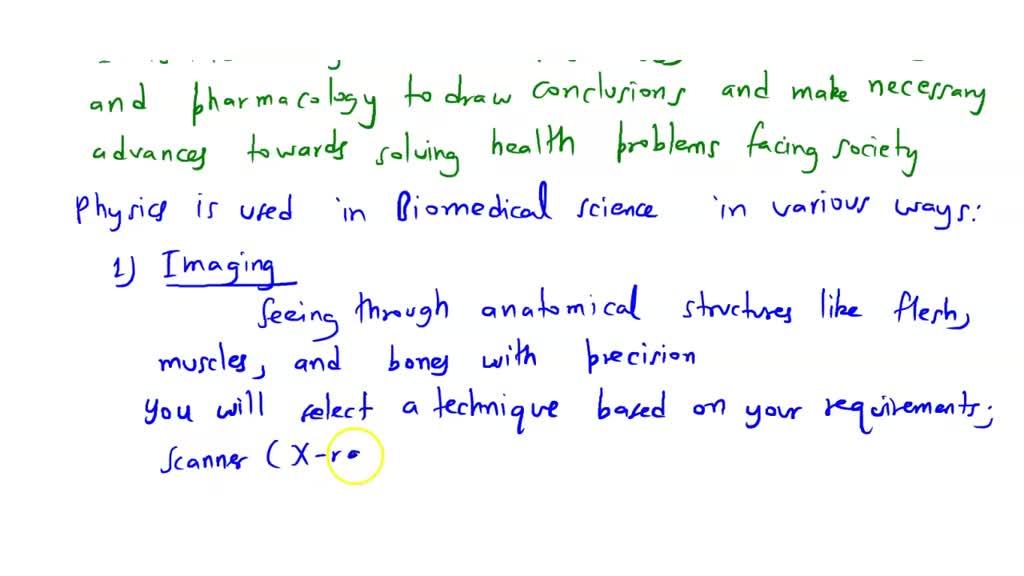 and pharmacology to draw conclusions and make necessary
advances towards solving health problems facing society
Physics is used in Biomedical science in various ways:
1) Imaging
Seeing through anatomical structures like flesh,
muscles, and bones with precision
You will select a technique based on your requirements;
Scanner (X-ra